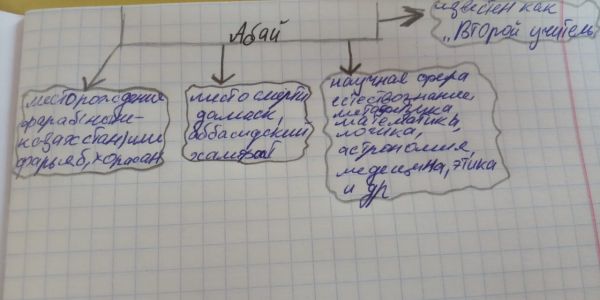 известен как
„Второй учитель
Абай
месторождение
фараб(ныне-
казахстан) или
фарьяб, хорасан
место смерти
дамаск,
аббасидский
халифат
научная сфера
естествознание,
метафизика,
математика,
логика,
астрономия,
медецина, этика
и др